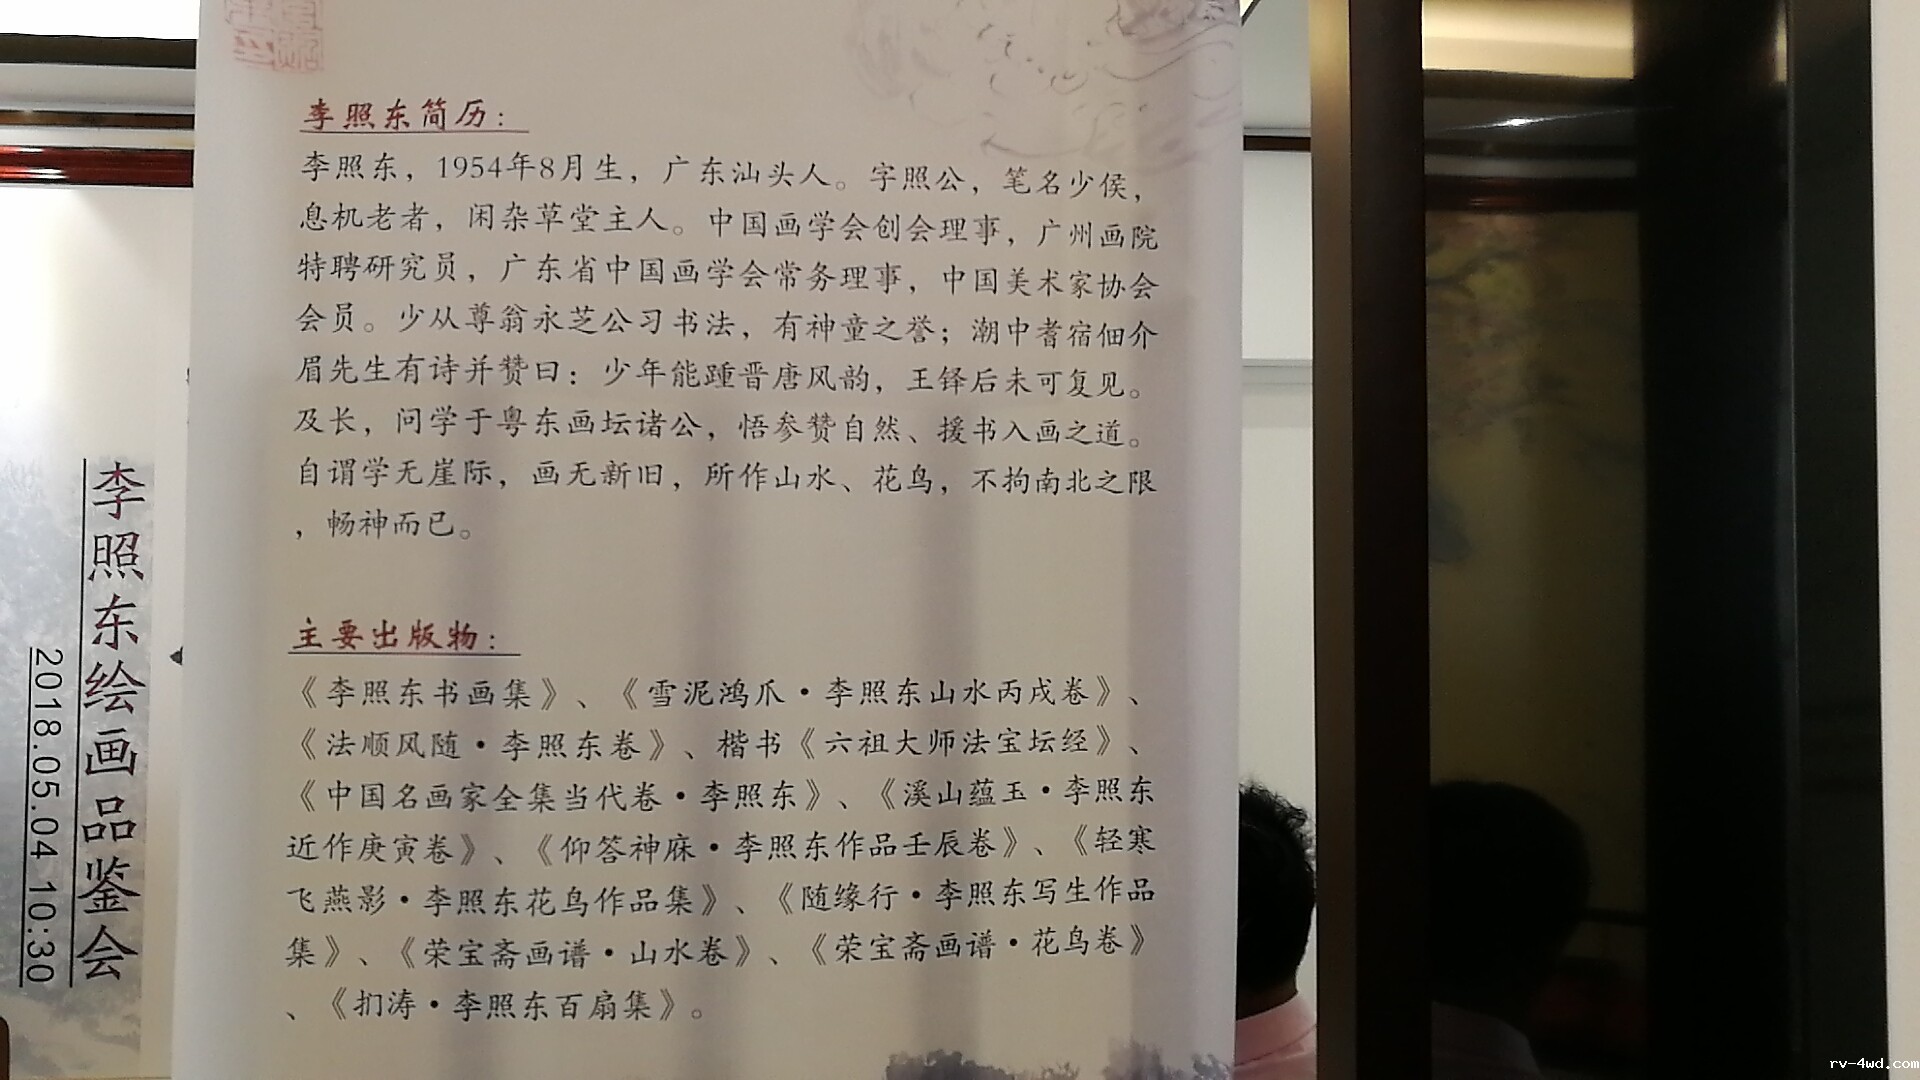 李照东简历：
李照东，1954年8月生，广东汕头人。字照公，笔名少侯，
息机老者，闲杂草堂主人。中国画学会创会理事，广州画院
特聘研究员，广东省中国画学会常务理事，中国美术家协会
会员。少从尊翁永芝公习书法，有神童之誉；潮中耆宿佃介
眉先生有诗并赞曰：少年能踵晋唐风韵，王铎后未可复见。
及长，问学于粤东画坛诸公，悟参赞自然、援书入画之道。
自谓学无崖际，画无新旧，所作山水、花鸟，不拘南北之限
，畅神而已。
主要出版物：
《李照东书画集》、《雪泥鸿爪·李照东山水丙戌卷》、
《法顺风随·李照东卷》、楷书《六祖大师法宝坛经》、
《中国名画家全集当代卷·李照东》、《溪山蕴玉·李照东
近作庚寅卷》、《仰答神庥·李照东作品壬辰卷》、《轻寒
飞燕影·李照东花鸟作品集》、《随缘行·李照东写生作品
集》、《荣宝斋画谱·山水卷》、《荣宝斋画谱·花鸟卷》
、《扪涛·李照东百扇集》。
李照东绘画品鉴会
2018.05.04 10:30
rv-4wd.com